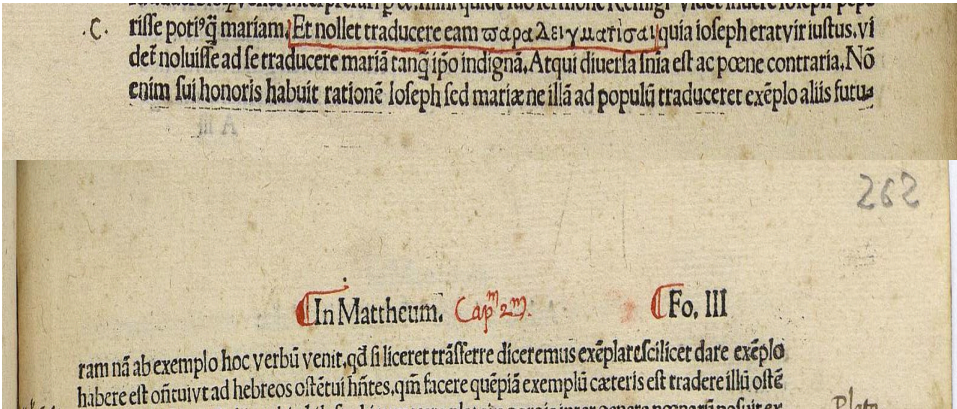 .C. risse potiꝰq̃ mariam. Et nollet traducere eam ϖαραλειγματισαι quia ioseph erat vir iustus. vi
det̃ noluisse ad se traducere mariā tanq̃ ip̃o indignā. Atqui diuersa s̃nia est ac pœne contraria. Nō
enim sui honoris habuit rationē Ioseph sed mariæ ne illā ad populū traduceret exēplo aliis futu-
A iii
262
In Mattheum. Cap^m 2^m. Fo. III
ram nā ab exemplo hoc verbū venit. qd̃ si liceret trāsferre diceremus exēplare scilicet dare exēplo
habere est oñtui vt ad hebreos ostētui hñtes, qm̃ facere quēpiā exemplū cæteris est tradere illū ostē
Plato